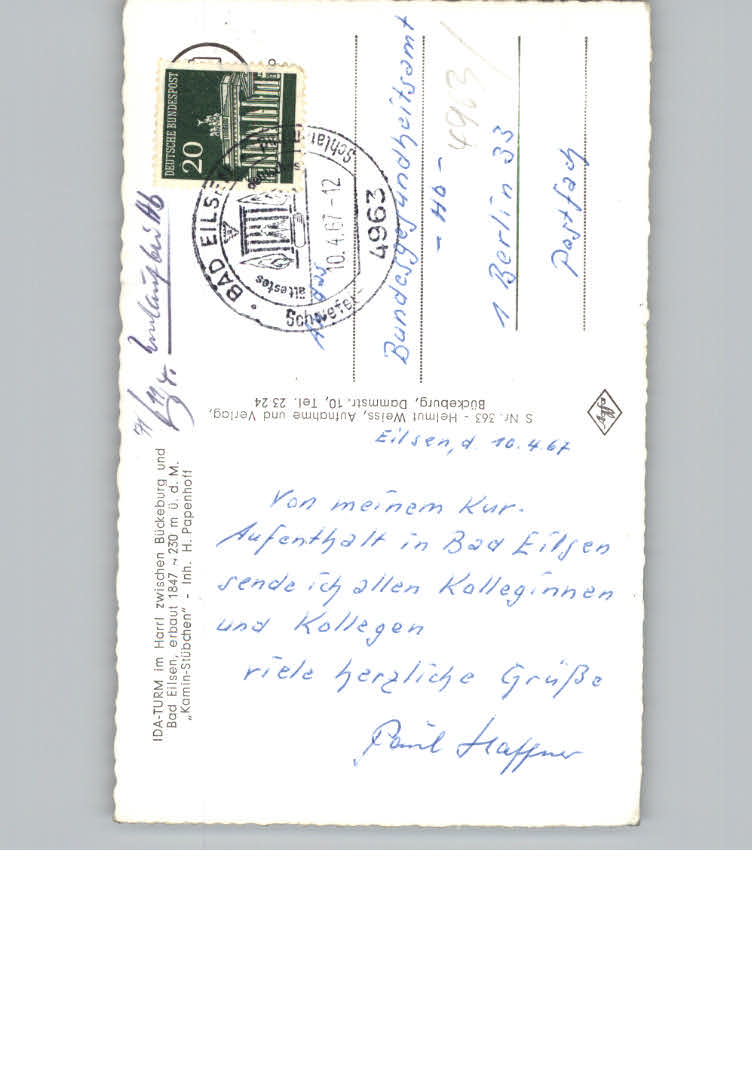 IDA-TURM im Harrl zwischen Bückeburg und
Bad Eilsen, erbaut 1847 ~ 230 m ü. d. M.
„Kamin-Stübchen" - Inh. H. Papenhoff
Eilsen, d. 10.4.67
Von meinem Kur-
Aufenthalt in Bad Eilsen
sende ich allen Kolleginnen
und Kollegen
viele herzliche Grüße
Paul Haffner
S Nr. 363 - Helmut Weiss, Aufnahme und Verlag,
Bückeburg, Dammstr. 10, Tel. 23 24
Agfa
DEUTSCHE BUNDESPOST
20
BAD EILSEN
10.4.67-12
4963
ältestes
Schwefel-
Schlamm
An das
Bundesgesundheitsamt
- Ab -
4963
1 Berlin 33
Postfach